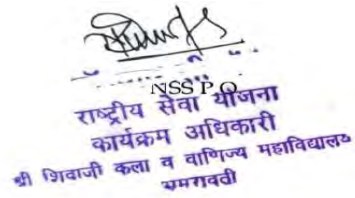 NSS P.O
राष्ट्रीय सेवा योजना
कार्यक्रम अधिकारी
श्री शिवाजी कला व वाणिज्य महाविद्यालय
अमरावती